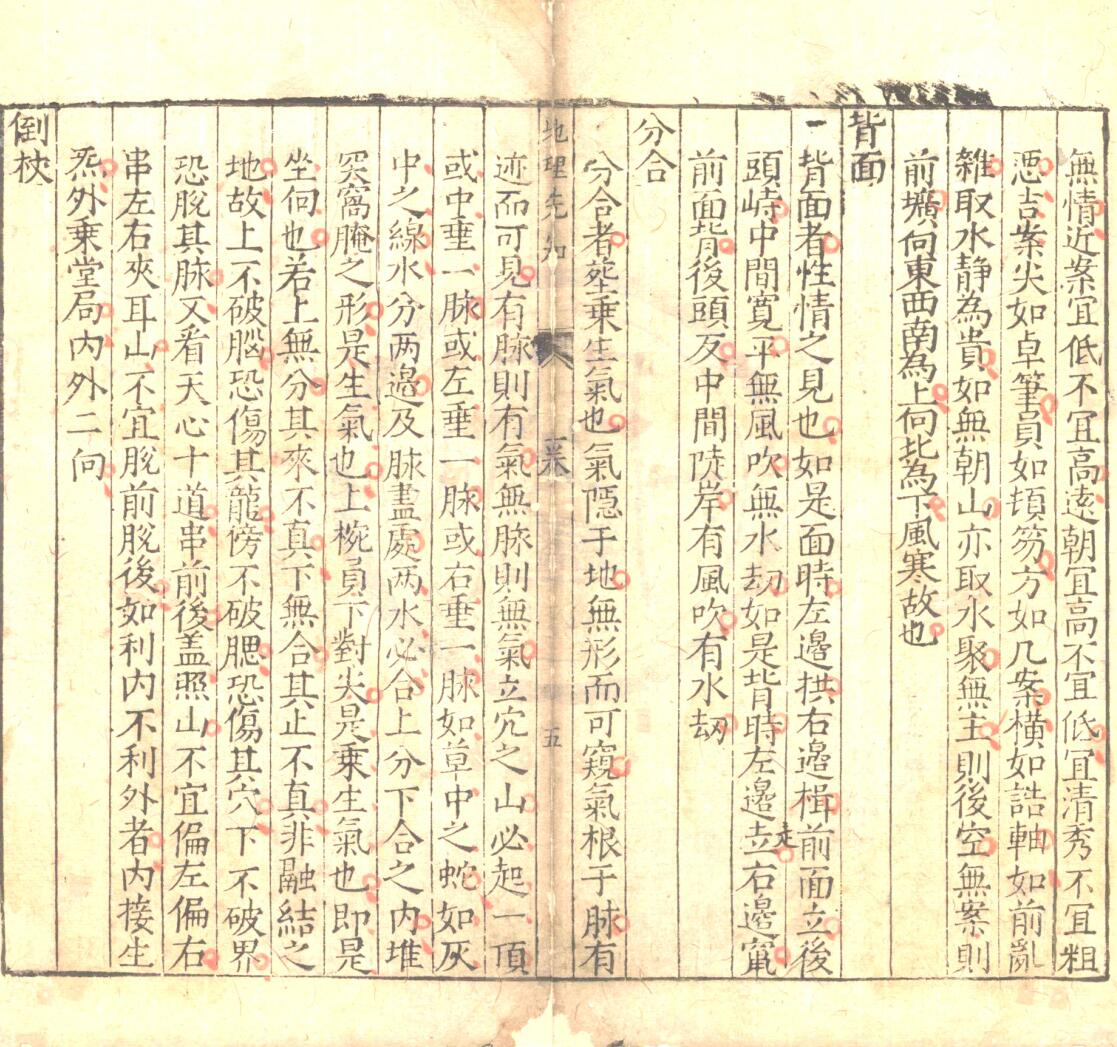 無情近案宜低不宜高遠朝宜高不宜低宜清秀不宜粗
惡吉案尖如卓筆員如頓笏方如几案橫如誥軸如前亂
雜取水静為貴如無朝山亦取水聚無主則後空無案則
前壙向東西南為上向北為下風寒故也
背面
一背面者性情之見也如是面時左邉拱右邉楫前面立後
頭峙中間寛平無風吹無水刼如是背時左邉走右邉竄
前面背後頭反中間陡岸有風吹有水刼
分合
分合者塟乗生氣也氣隱于地無形而可窺氣根于脉有
地理先知
一巻
五
迹而可見有脉則有氣無脉則無氣立穴之山必起一頂
或中垂一脉或左垂一脉或右垂一脉如草中之蛇如灰
中之線水分两邉及脉盡處两水必合上分下合之内堆
突窩腌之形是生氣也上椀員下對尖是乗生氣也即是
坐向也若上無分其來不真下無合其止不真非融結之
地故上不破腦恐傷其龍傍不破腮恐傷其穴下不破界
恐脫其脉又看天心十道串前後盖照山不宜偏左偏右
串左右夾耳山不宜脫前脫後如利内不利外者内接生
炁外乗堂局内外二向
倒杖